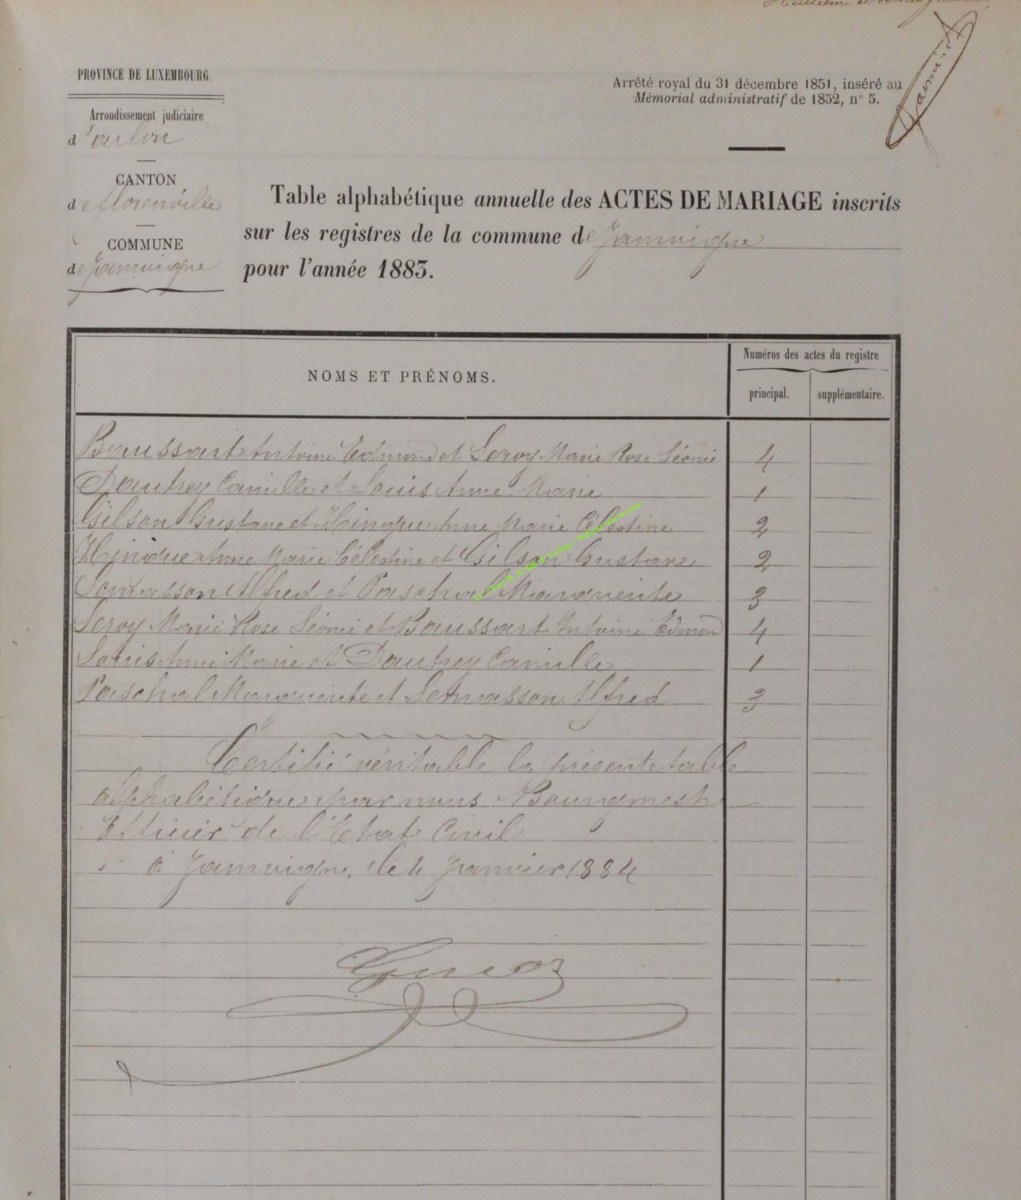 PROVINCE DE LUXEMBOURG.
Arrêté royal du 31 décembre 1851, inséré au
Mémorial administratif de 1852, n° 5.
Arrondissement judiciaire
d'arlon
CANTON
de Florenville
COMMUNE
de Jamoigne
Table alphabétique annuelle des ACTES DE MARIAGE inscrits
sur les registres de la commune de Jamoigne
pour l'année 1883.
NOMS ET PRÉNOMS.
Numéros des actes du registre
principal. supplémentaire.
Baussart Antoine Edmond et Leroy Marie Rose Léonie 4
Dautrey Camille et Louis Anne Marie 1
Gilson Gustave et Hinque Anne Marie Célestine 2
Hinque Anne Marie Célestine et Gilson Gustave 2
Alfred et Paschal Marguerite 3
Leroy Marie Rose Léonie et Baussart Antoine Edmond 4
Louis Anne Marie et Dautrey Camille 1
Paschal Marguerite et Alfred 3
Certifié véritable la présente table
alphabétique par nous Bourgmestre
Officier de l'Etat Civil
à Jamoigne, le 4 Janvier 1884